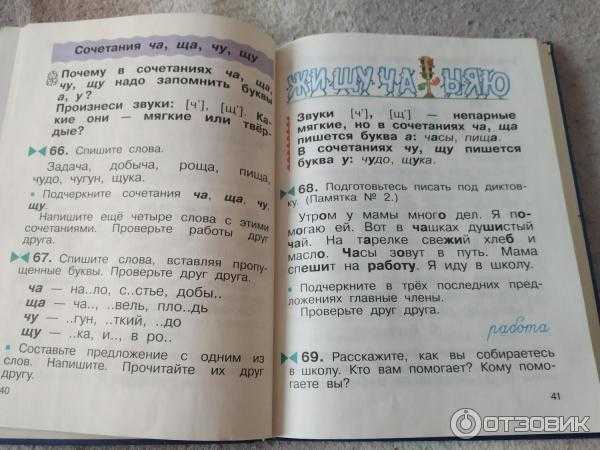 Сочетания ча, ща, чу, щу
Почему в сочетаниях ча, ща,
чу, щу надо запомнить буквы
а, у?
Произнеси звуки: [ч'], [щ']. Ка-
кие они — мягкие или твёр-
дые?
66. Спишите слова.
Задача, добыча, роща, пища,
чудо, чугун, щука.
• Подчеркните сочетания ча, ща, чу,
щу.
Напишите ещё четыре слова с этими
сочетаниями. Проверьте работы друг
друга.
67. Спишите слова, вставляя пропу-
щенные буквы. Проверьте друг друга.
ча — на..ло, с..стье, добы..
ща — ча.., ..вель, пло..дь
чу — ..гун, ..ткий, ..до
щу — ..ка, и.., в ро..
• Составьте предложение с одним из
слов. Напишите. Прочитайте их друг
другу.
40
ЖИ ШУ ЧА НЯЮ
Звуки [ч'], [щ'] — непарные
мягкие, но в сочетаниях ча, ща
пишется буква а: часы, пища.
В сочетаниях чу, щу пишется
буква у: чудо, щука.
68. Подготовьтесь писать под диктов-
ку. (Памятка № 2.)
Утром у мамы много дел. Я по-
могаю ей. Вот в чашках душистый
чай. На тарелке свежий хлеб и
масло. Часы зовут в путь. Мама
спешит на работу. Я иду в школу.
• Подчеркните в трёх последних пред-
ложениях главные члены.
Проверьте друг друга.
работа
69. Расскажите, как вы собираетесь
в школу. Кто вам помогает? Кому помо-
гаете вы?
41
ОТЗОВИК